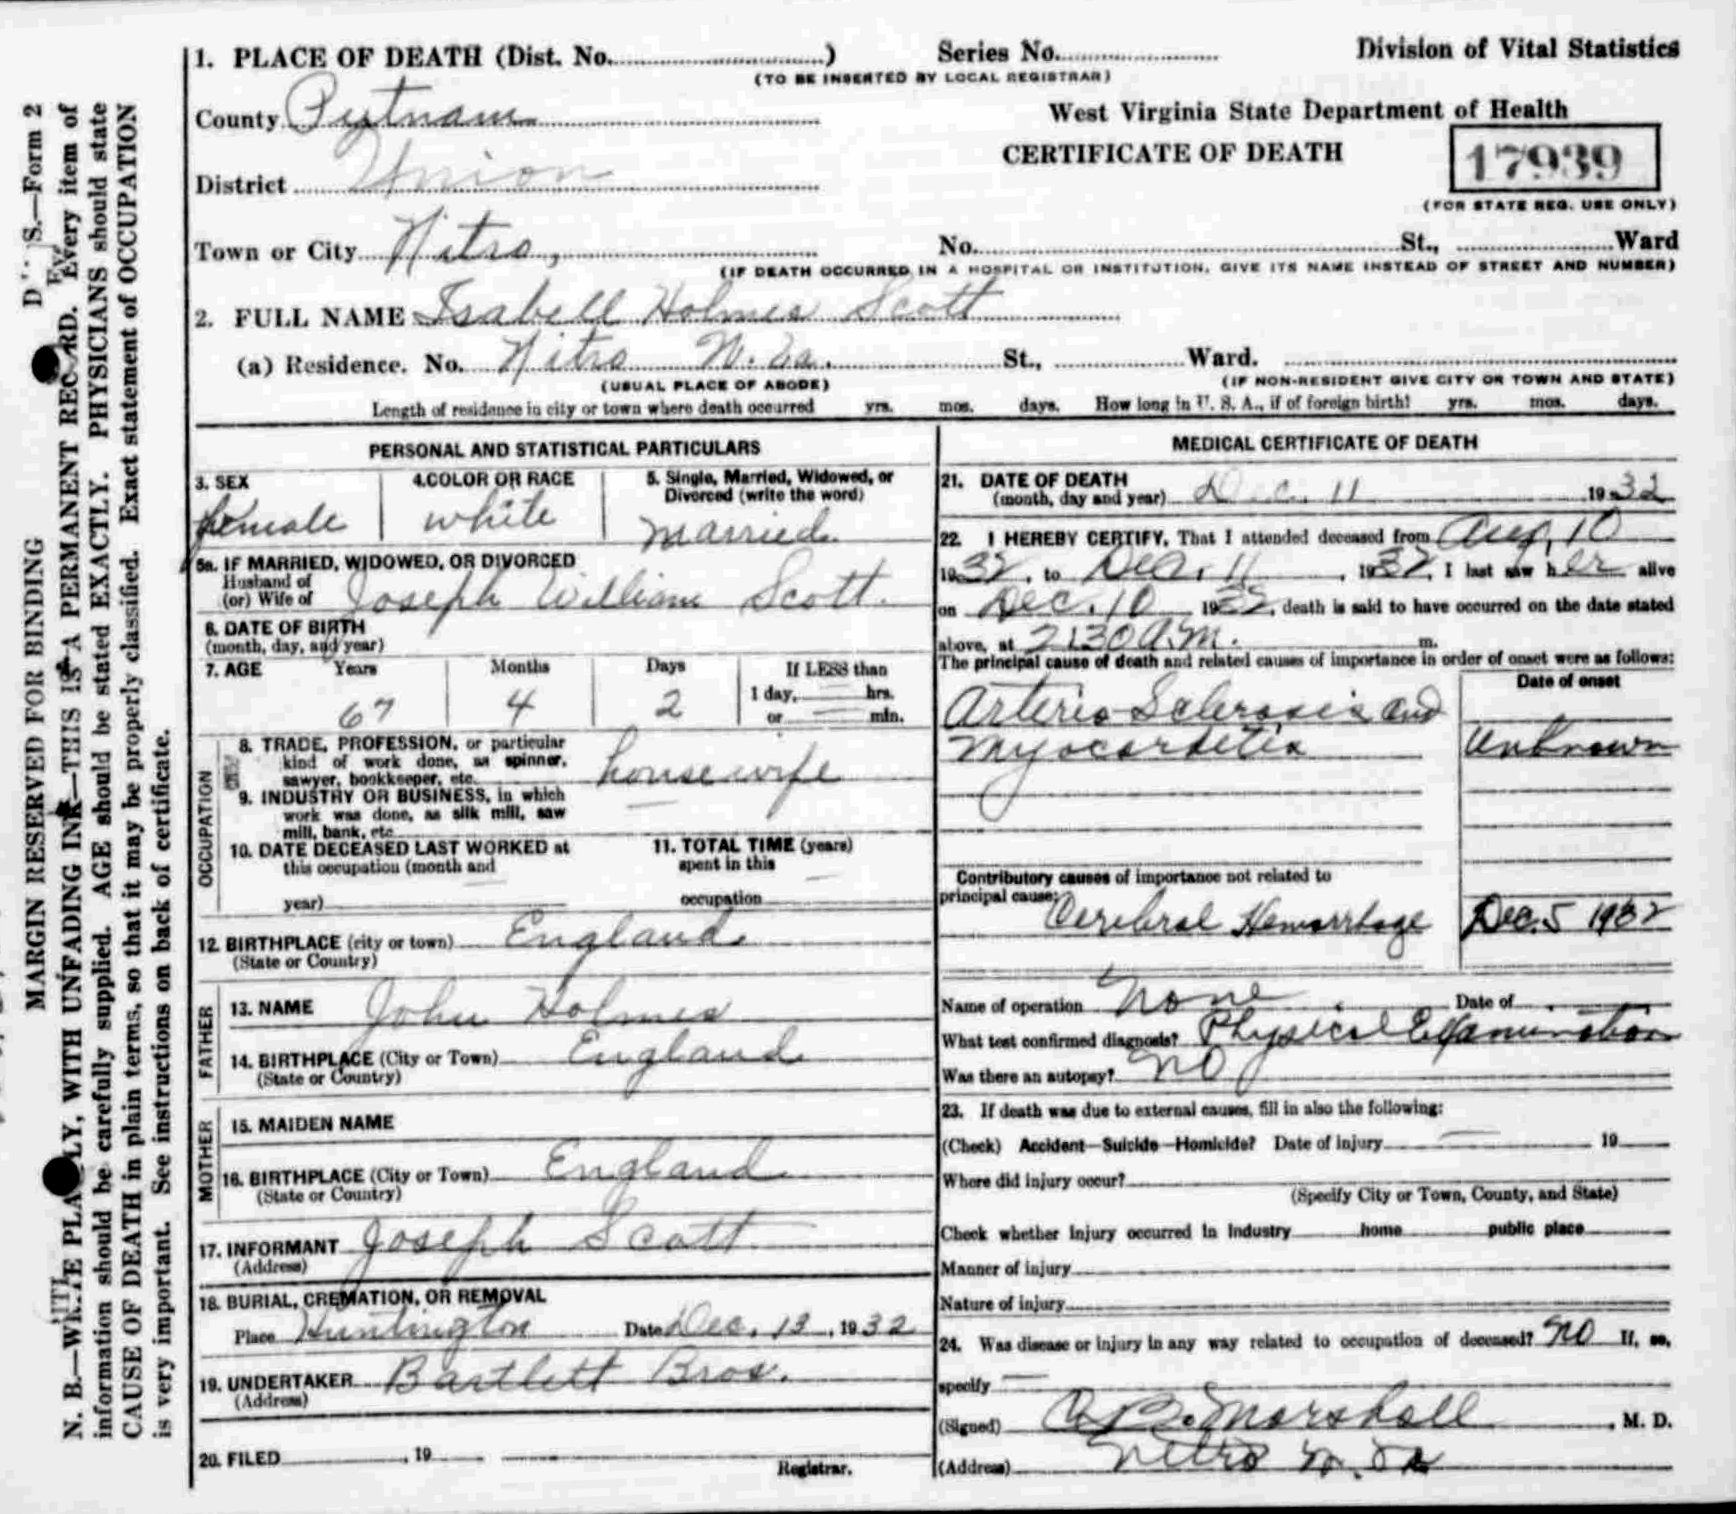 1. PLACE OF DEATH (Dist. No. ) Series No. Division of Vital Statistics
(TO BE INSERTED BY LOCAL REGISTRAR)
County Putnam West Virginia State Department of Health
CERTIFICATE OF DEATH 17939
District Union
(FOR STATE REG. USE ONLY)
Town or City Nitro, No. St., Ward
(IF DEATH OCCURRED IN A HOSPITAL OR INSTITUTION, GIVE ITS NAME INSTEAD OF STREET AND NUMBER)
2. FULL NAME Isabell Holmes Scott
(a) Residence. No. Nitro W. Va. St., Ward.
(USUAL PLACE OF ABODE) (IF NON-RESIDENT GIVE CITY OR TOWN AND STATE)
Length of residence in city or town where death occurred yrs. mos. days. How long in U. S. A., if of foreign birth? yrs. mos. days.
PERSONAL AND STATISTICAL PARTICULARS
3. SEX 4. COLOR OR RACE 5. Single, Married, Widowed, or
Divorced (write the word)
female white married.
5a. IF MARRIED, WIDOWED, OR DIVORCED
Husband of
(or) Wife of Joseph William Scott.
6. DATE OF BIRTH
(month, day, and year)
7. AGE Years Months Days If LESS than
1 day, — hrs.
67 4 2 or — min.
OCCUPATION
8. TRADE, PROFESSION, or particular
kind of work done, as spinner,
sawyer, bookkeeper, etc. housewife
9. INDUSTRY OR BUSINESS, in which
work was done, as silk mill, saw
mill, bank, etc. —
10. DATE DECEASED LAST WORKED at 11. TOTAL TIME (years)
this occupation (month and spent in this
year) — occupation —
12. BIRTHPLACE (city or town) England.
(State or Country)
FATHER
13. NAME John Holmes
14. BIRTHPLACE (City or Town) England
(State or Country)
MOTHER
15. MAIDEN NAME
16. BIRTHPLACE (City or Town) England
(State or Country)
17. INFORMANT Joseph Scott
(Address)
18. BURIAL, CREMATION, OR REMOVAL
Place Huntington Date Dec. 13, 1932
19. UNDERTAKER Bartlett Bros.
(Address)
20. FILED , 19
Registrar.
MEDICAL CERTIFICATE OF DEATH
21. DATE OF DEATH
(month, day and year) Dec. 11 1932
22. I HEREBY CERTIFY, That I attended deceased from Aug, 10
1932, to Dec. 11, 1932, I last saw her alive
on Dec. 10 1932, death is said to have occurred on the date stated
above, at 2:30 A.M. m.
The principal cause of death and related causes of importance in order of onset were as follows:
Date of onset
Arterio Sclerosis and
Myocarditis Unknown
Contributory causes of importance not related to
principal cause:
Cerebral Hemorrhage Dec. 5 1932
Name of operation None Date of
What test confirmed diagnosis? Physical Examination
Was there an autopsy? NO
23. If death was due to external causes, fill in also the following:
(Check) Accident—Suicide—Homicide? Date of injury — 19
Where did injury occur?
(Specify City or Town, County, and State)
Check whether injury occurred in industry home public place
Manner of injury
Nature of injury
24. Was disease or injury in any way related to occupation of deceased? NO If, so,
specify —
(Signed) C.B. Marshall, M. D.
(Address) Nitro W. Va
MARGIN RESERVED FOR BINDING S.—Form 2
N. B.—WRITE PLAINLY, WITH UNFADING INK—THIS IS A PERMANENT RECORD. Every item of
information should be carefully supplied. AGE should be stated EXACTLY. PHYSICIANS should state
CAUSE OF DEATH in plain terms, so that it may be properly classified. Exact statement of OCCUPATION
is very important. See instructions on back of certificate.